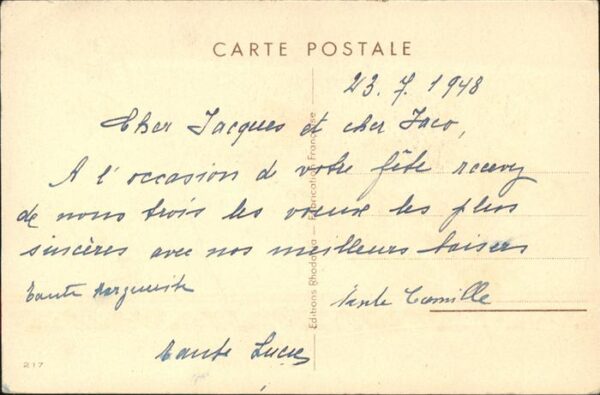 CARTE POSTALE
23.7.1948
Cher Jacques et cher Jaco,
A l'occasion de votre fête recevez
de nous trois les voeux les plus
sincères avec nos meilleurs baisers
Tante Marguerite
Tante Camille
Tante Lucie
217
Editions Rhodania — Fabrication Française